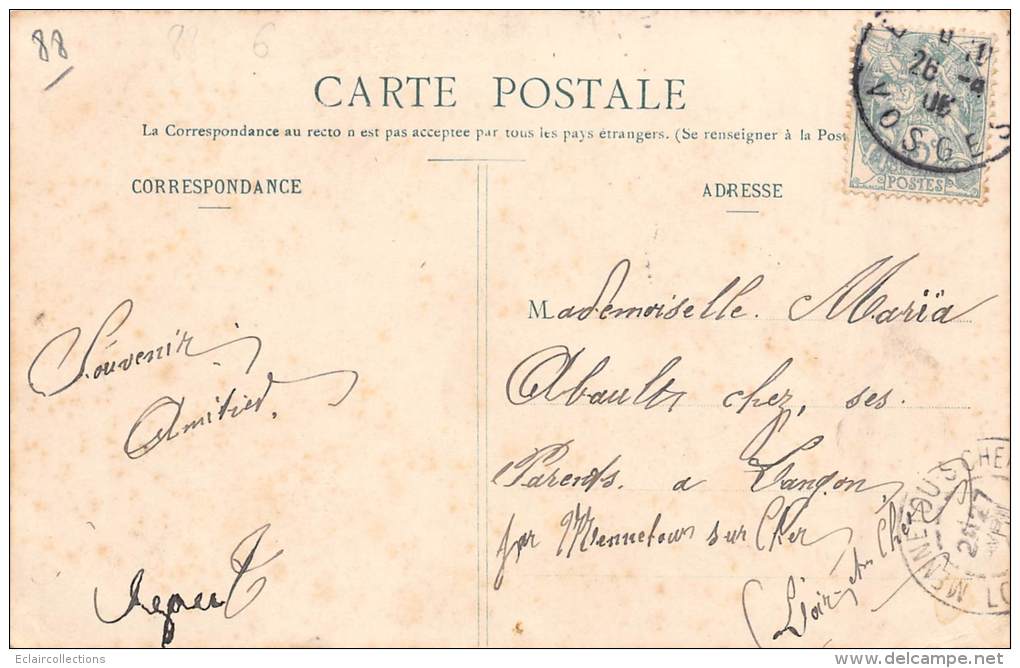 88
88 6
CARTE POSTALE
La Correspondance au recto n est pas acceptee par tous les pays étrangers. (Se renseigner à la Post
CORRESPONDANCE
ADRESSE
26 -4
VOSGES
POSTES
Mademoiselle. Maria
Abault chez, ses.
Parents. a Langon,
par Mennetou sur Cher
(Loir et Cher)
Souvenir
Amitiés.
MENNETOU-S-CHER
27
AVRIL
Eclaircollections
delcampe.net